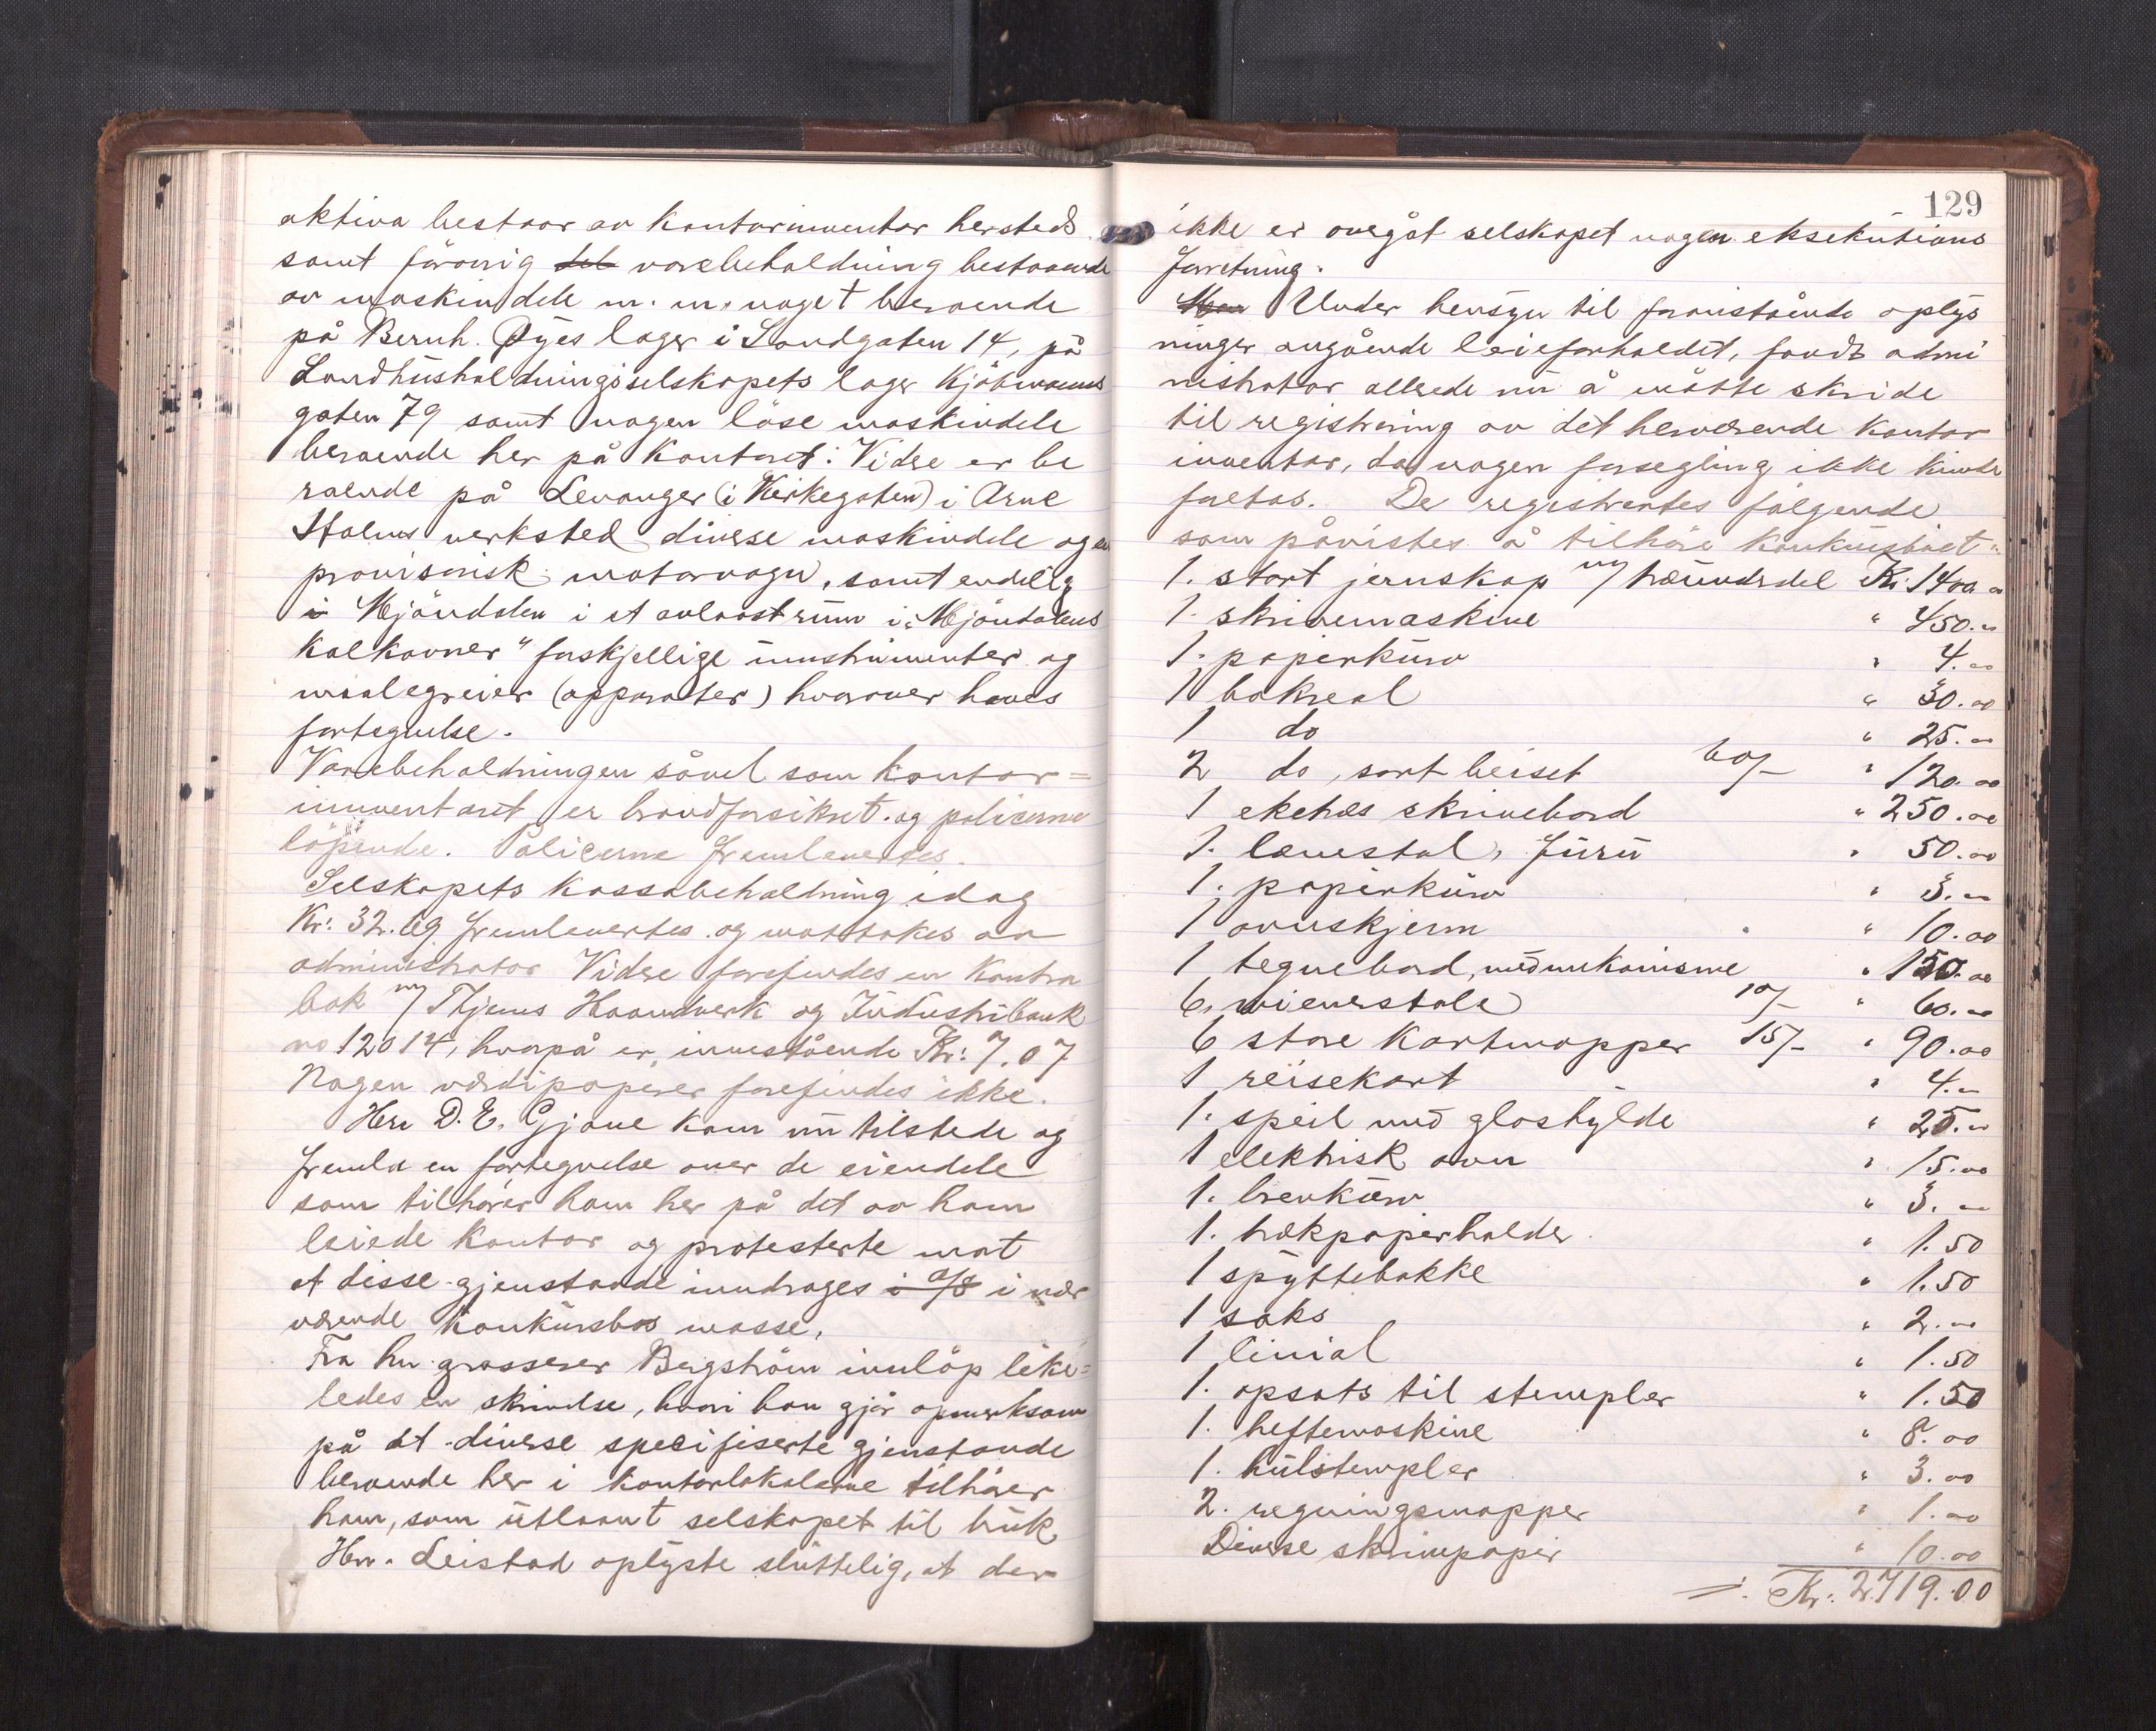 aktiva bestaar av kontorinventar hersteds
samt førøvrig del varebeholdning bestaaende
av maskindele m. m. noget beroende
på Bernh. Øyes lager i Sandgaten 14, på
Landhusholdningsselskapets lager Kjøbmanns
gaten 79 samt nogen løse maskindele
beroende her på kontoret. Videre er be
roende på Levanger (i Kirkegaten) i Arne
Holms verksted diverse maskindele og en
provisorisk motorvogn, samt endelig
i Mjøndalen i et avlaast rum i "Mjøndalens
Kalkovner" forskjellige instrumenter og
maalegreier (apparater) hvorover haves
fortegnelse.
Varebeholdningen såvel som kontor=
inventaret er brandforsikret og policerne
løpende. Policerne fremlevertes.
Selskapets kassabeholdning idag
Kr: 32.69 fremlevertes og mottokes av
administrator Videre forefindes en kontra
bok m/ Thjems Haandverk og Industribank
no 12014, hvorpå er innestående Kr: 7.07
Nogen værdipapirer forefindes ikke.
Herr D. E. Gjone kom nu tilstede og
fremla en fortegnelse over de eiendele
som tilhører ham her på det av ham
leiede kontor og protesterte mot
at disse gjenstande inndrages i a/s i nær
værende konkursbos masse.
Fra hr. grosserer Bergstrøm innløp like=
ledes en skrivelse, hvori han gjør opmerksom
på at diverse specifiserte gjenstande
beroende her i kontorlokalerne tilhører
ham, som utlaant selskapet til bruk
Herr. Leistad oplyste sluttelig, at der
129
ikke er overgåt selskapet nogen eksekutions
forretning.
Under hensyn til foranstående oplys
ninger angående leieforholdet, fandt admi
nistrator allerede nu å måtte skride
til registrering av det herværende kontor
inventar, da nogen forsegling ikke kunde
foretas. Der registrertes følgende
som påvistes å tilhøre konkursboet:
1. stort jernskap m/ træunderdel Kr. 1400.00
1. skrivemaskine " 450.00
1. papirkurv " 4.00
1 bokreol " 30.00
1 do " 25.00
2 do, sort beiset 60/- " 120.00
1 eketræs skrivebord " 250.00
1. lænestol, furu " 50.00
1. papirkurv " 3.00
1 ovnskjerm " 10.00
1 tegnebord, med mekanisme " 150.00
6. wienerstole 10/- " 60.00
6 store kartmapper 15/- " 90.00
1 reisekart " 4.00
1. speil med glashylde " 25.00
1 elektrisk ovn " 15.00
1. brevkurv " 3.00
1. trækpapirholder " 1.50
1 spyttebakke " 1.50
1 saks " 2.00
1 linial " 1.50
1. opsats til stempler " 1.50
1. heftemaskine " 8.00
1. hulstempler " 3.00
2. regningsmapper " 1.00
Diverse skrivepapir " 10.00
=. Kr: 2719.00